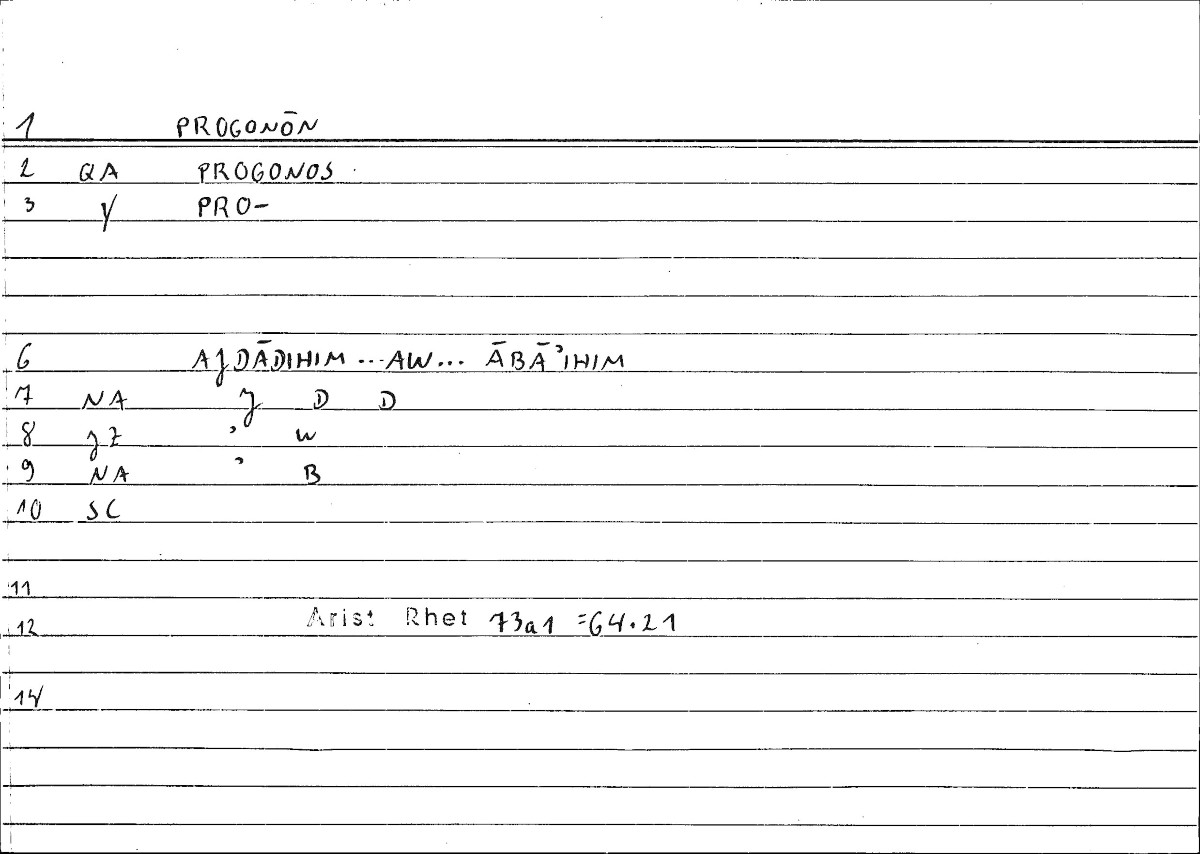 1 PROGONŌN
2 QA PROGONOS
3 Y PRO-
6 AJDĀDIHIM ... AW ... ĀBĀʾIHIM
7 NA J D D
8 JZ ʾ W
9 NA ʾ B
10 SC
11
12 Arist Rhet 73a1 =64.21
14